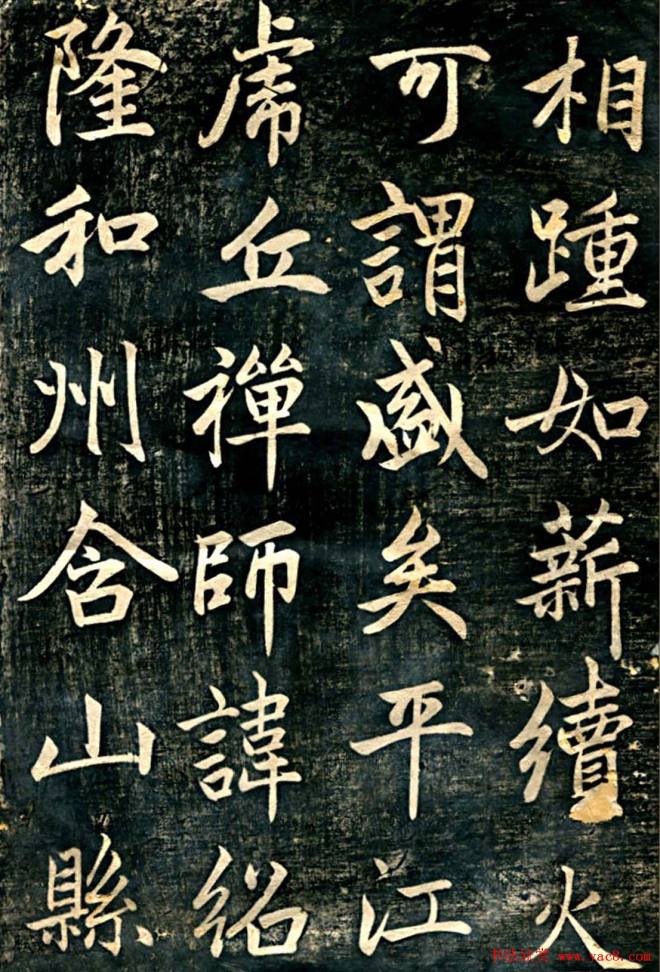 相踵如薪續火
可謂盛矣平江
虎丘禪師諱紹
隆和州含山縣
书法欣赏 www.yac8.com